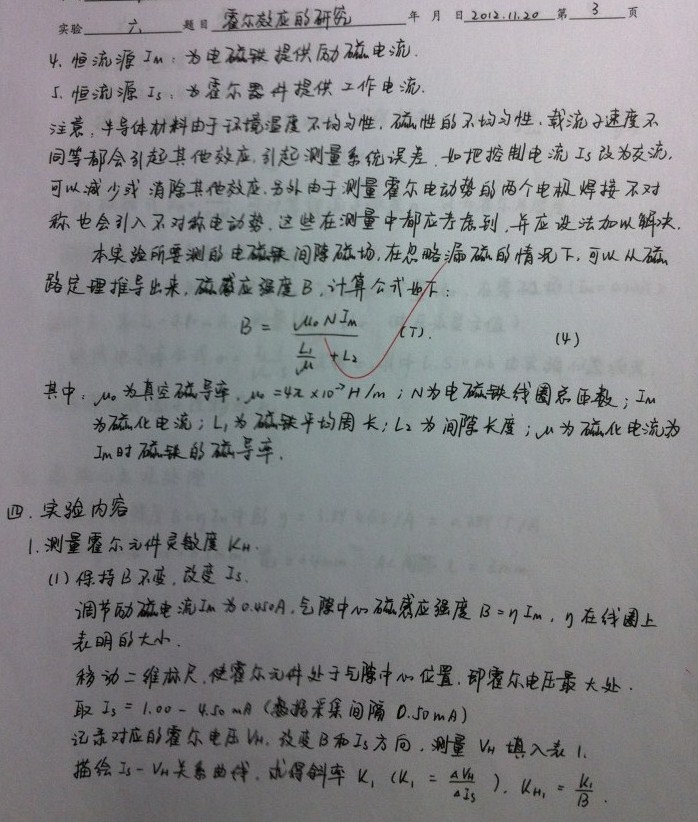 实验 六 题目 霍尔效应的研究 年 月 日 2012.11.20 第 3 页
4. 恒流源 Im：为电磁铁提供励磁电流.
5. 恒流源 Is：为霍尔器件提供工作电流.
注意：半导体材料由于环境温度不均匀性，磁性的不均匀性，载流子速度不
同等都会引起其他效应，引起测量系统误差. 如把控制电流 Is 改为交流，
可以减少或消除其他效应. 另外由于测量霍尔电动势的两个电极焊接不对
称也会引入不对称电动势. 这些在测量中都应考虑到，并应设法加以解决.
本实验所要测的电磁铁间隙磁场，在忽略漏磁的情况下，可以从磁
路定理推导出来，磁感应强度 B，计算公式如下：
B = μ₀NIm / (L₁/μ + L₂) (T). (4)
其中：μ₀ 为真空磁导率，μ₀ = 4π×10⁻⁷H/m；N为电磁铁线圈总匝数；Im
为磁化电流；L₁为磁铁平均周长；L₂为间隙长度；μ为磁化电流为
Im时磁铁的磁导率.
四. 实验内容
1. 测量霍尔元件灵敏度 KH.
(1) 保持B不变，改变 Is.
调节励磁电流Im为0.450A，气隙中心磁感应强度 B=ηIm，η在线圈上
表明的大小.
移动二维标尺，使霍尔元件处于气隙中心位置，即霍尔电压最大处.
取 Is = 1.00 - 4.50 mA (数据采集间隔 0.50mA)
记录对应的霍尔电压VH，改变B和Is方向，测量 VH 填入表1.
描绘 Is-VH关系曲线，求得斜率 K₁ (K₁ = ΔVH/ΔIs)，KH₁ = K₁/B.